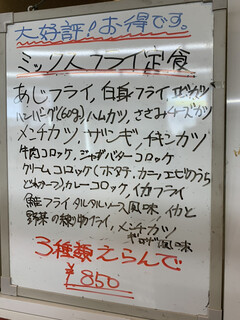 大好評!お得です。
ミックスフライ定食
あじフライ, 白身フライ エビカツ
ハンバーグ(60g) ハムカツ, ささみチーズカツ
メンチカツ, ザンギ, チキンカツ
牛肉コロッケ, ジャガバターコロッケ
クリームコロッケ(ホタテ, カニ, エビのうち
どれか一ケ) カレーコロッケ, イカフライ
鮭フライ タルタルソース風味, イカと
野菜の練り物フライ, メンチカツ
ギョーザ風味
3種類えらんで
¥850